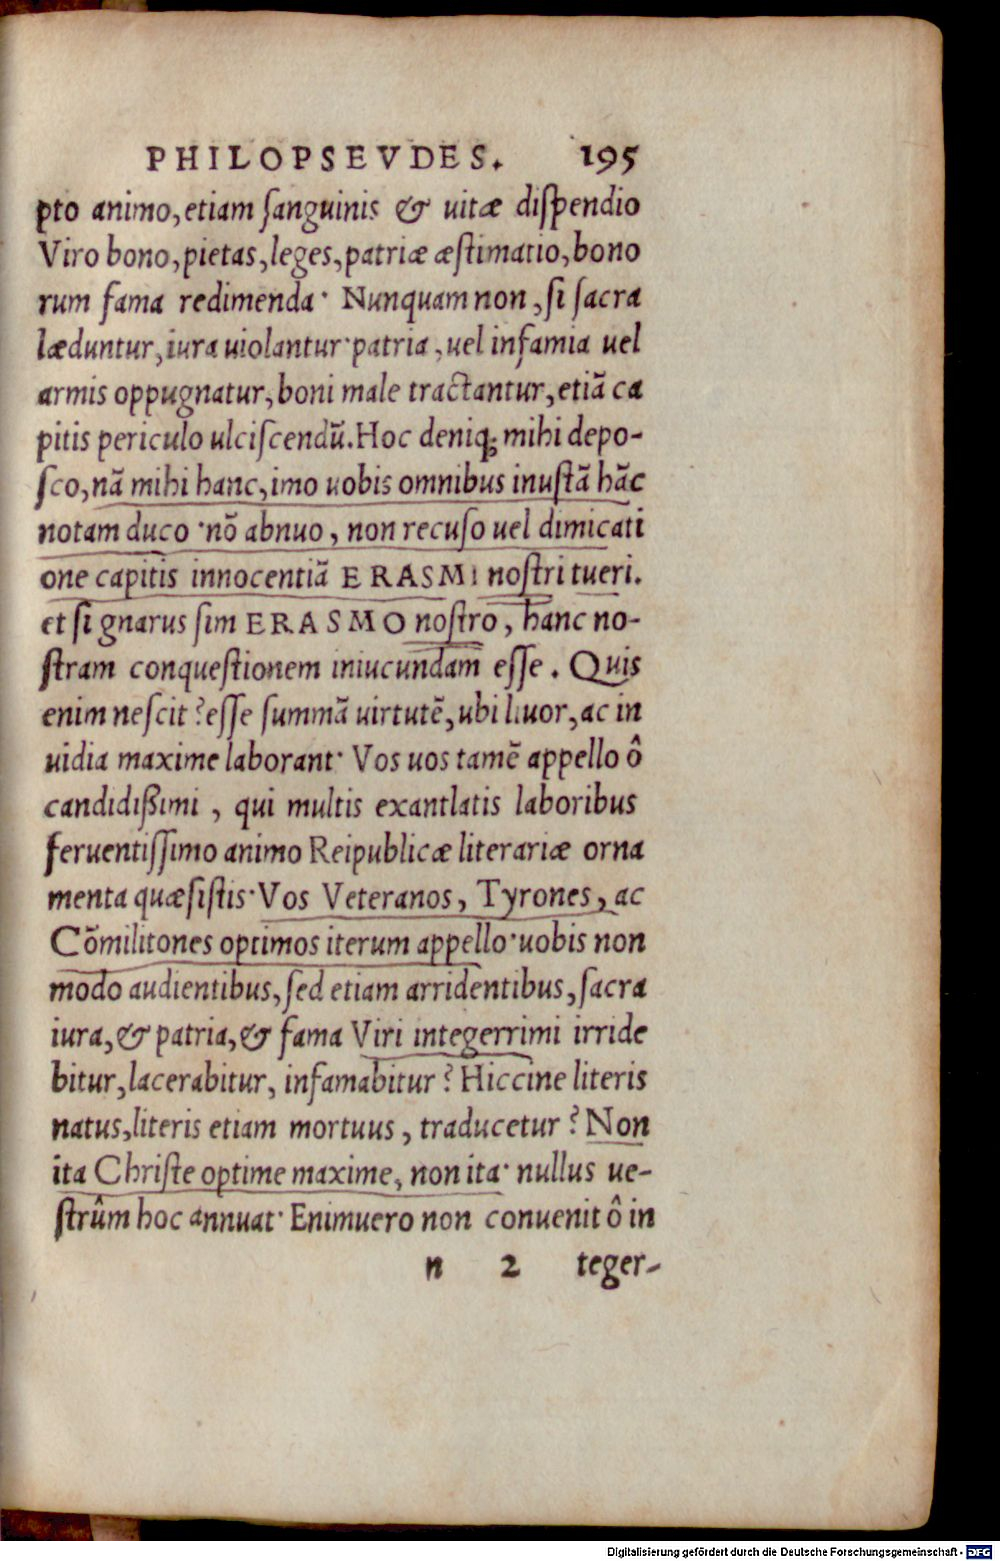 PHILOPSEVDES. 195
pto animo, etiam ſanguinis & uitæ diſpendio
Viro bono, pietas, leges, patriæ æſtimatio, bono
rum fama redimenda· Nunquam non, ſi ſacra
læduntur, iura uiolantur· patria, uel infamia uel
armis oppugnatur, boni male tractantur, etiã ca
pitis periculo ulciſcendũ. Hoc deniq; mihi depo-
ſco, nã mihi hanc, imo uobis omnibus inuſtã hãc
notam duco· nõ abnuo, non recuſo uel dimicati
one capitis innocentiã ERASMI noſtri tueri.
et ſi gnarus ſim ERASMO noſtro, hanc no-
ſtram conqueſtionem iniucundam eſſe. Quis
enim neſcit? eſſe ſummã uirtutẽ, ubi liuor, ac in
uidia maxime laborant· Vos uos tamẽ appello ô
candidißimi, qui multis exantlatis laboribus
feruentiſſimo animo Reipublicæ literariæ orna
menta quæſiſtis· Vos Veteranos, Tyrones, ac
Cõmilitones optimos iterum appello· uobis non
modo audientibus, ſed etiam arridentibus, ſacra
iura, & patria, & fama Viri integerrimi irride
bitur, lacerabitur, infamabitur? Hiccine literis
natus, literis etiam mortuus, traducetur? Non
ita Chriſte optime maxime, non ita· nullus ue-
ſtrûm hoc annuat· Enimuero non conuenit ô in
n 2 teger-
Digitalisierung gefördert durch die Deutsche Forschungsgemeinschaft - DFG